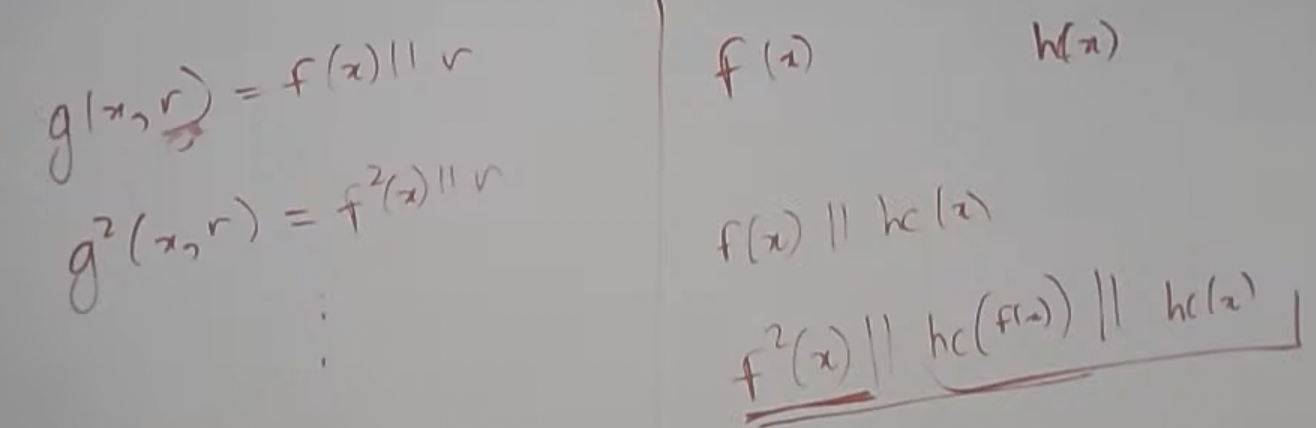 g(x, r) = f(x) || r
g²(x, r) = f²(x) || r
⋮
f(x) h(x)
f(x) || hc(x)
f²(x) || hc(f(x)) || hc(x)